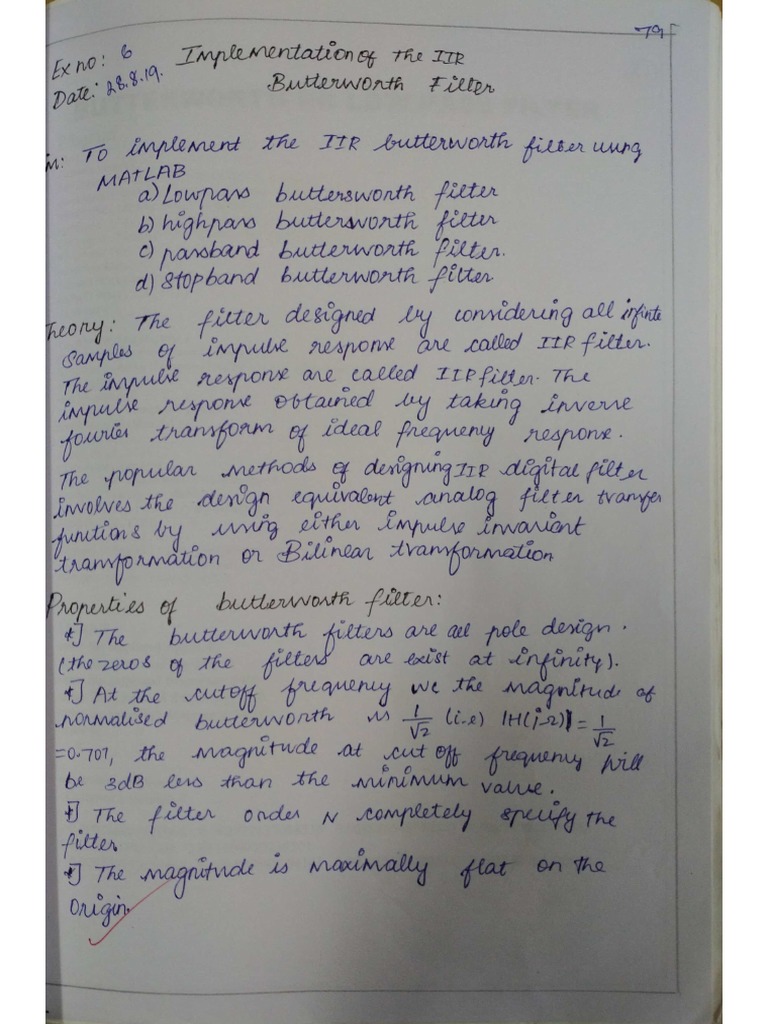 79
Ex no: 6 Implementation of the IIR
Date: 28.8.19. Butterworth Filter
m: To implement the IIR butterworth filter using
MATLAB
a) Lowpass buttersworth filter
b) highpass buttersworth filter
c) passband butterworth filter.
d) Stopband butterworth filter
heory: The filter designed by considering all infinite
samples of impulse response are called IIR filter.
The impulse response are called IIR filter. The
impulse response obtained by taking inverse
fourier transform of ideal frequency response.
The popular methods of designing IIR digital filter
involves the design equivalent analog filter transfer
functions by using either impulse invariant
transformation or Bilinear transformation
Properties of butterworth filter:
*] The butterworth filters are all pole design.
(the zeros of the filters are exist at infinity).
*] At the cutoff frequency wc the magnitude of
normalised butterworth is 1/√2 (i.e) |H(jΩ)| = 1/√2
=0.707, the magnitude at cut off frequency will
be 3dB less than the minimum value.
*] The filter order N completely specify the
filter
*] The magnitude is maximally flat on the
origin.